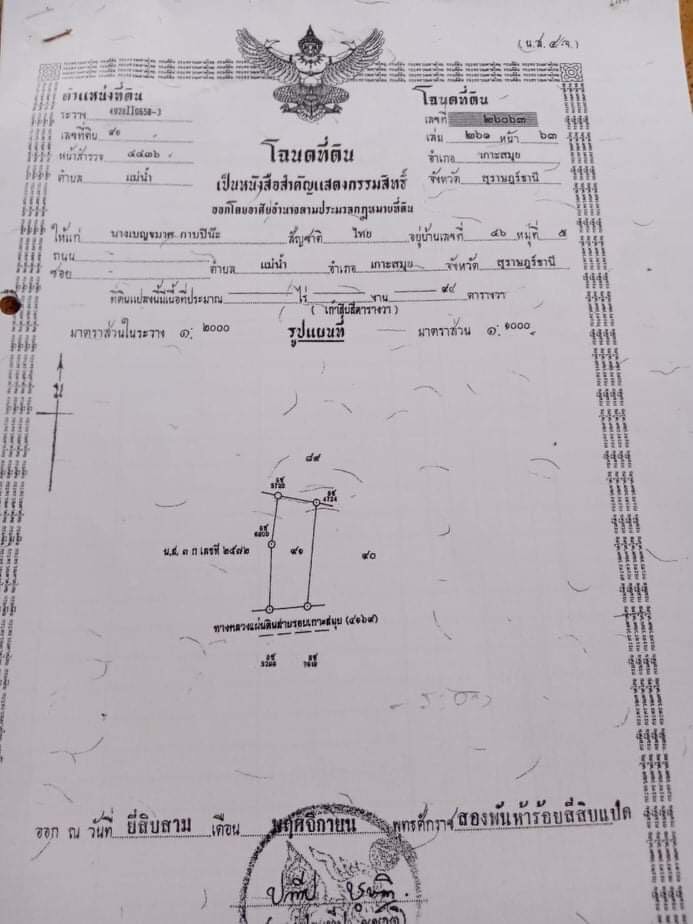 (น.ส. ๔ จ.)
ตำแหน่งที่ดิน
ระวาง 4928II0658-3
เลขที่ดิน ๙๑
หน้าสำรวจ ๔๔๓๖
ตำบล แม่น้ำ
โฉนดที่ดิน
เลขที่ ๒๖๐๖๓
เล่ม ๒๖๑ หน้า ๖๓
อำเภอ เกาะสมุย
จังหวัด สุราษฎร์ธานี
โฉนดที่ดิน
เป็นหนังสือสำคัญแสดงกรรมสิทธิ์
ออกโดยอาศัยอำนาจตามประมวลกฎหมายที่ดิน
ให้แก่ นางเบญจมาศ กาบปินะ สัญชาติ ไทย อยู่บ้านเลขที่ ๔๖ หมู่ที่ ๕
ถนน -
ซอย - ตำบล แม่น้ำ อำเภอ เกาะสมุย จังหวัด สุราษฎร์ธานี
ที่ดินแปลงนี้มีเนื้อที่ประมาณ ไร่ งาน ๙๔ ตารางวา
( เก้าสิบสี่ตารางวา )
มาตราส่วนในระวาง ๑: ๒๐๐๐ รูปแผนที่ มาตราส่วน ๑: ๑๐๐๐
น
๘๙
น.ส. ๓ ก เลขที่ ๒๕๗๒ ๙๑ ๙๐
ทางหลวงแผ่นดินสายรอบเกาะสมุย (๔๑๖๙)
ออก ณ วันที่ ยี่สิบสาม เดือน พฤศจิกายน พุทธศักราช สองพันห้าร้อยสี่สิบแปด